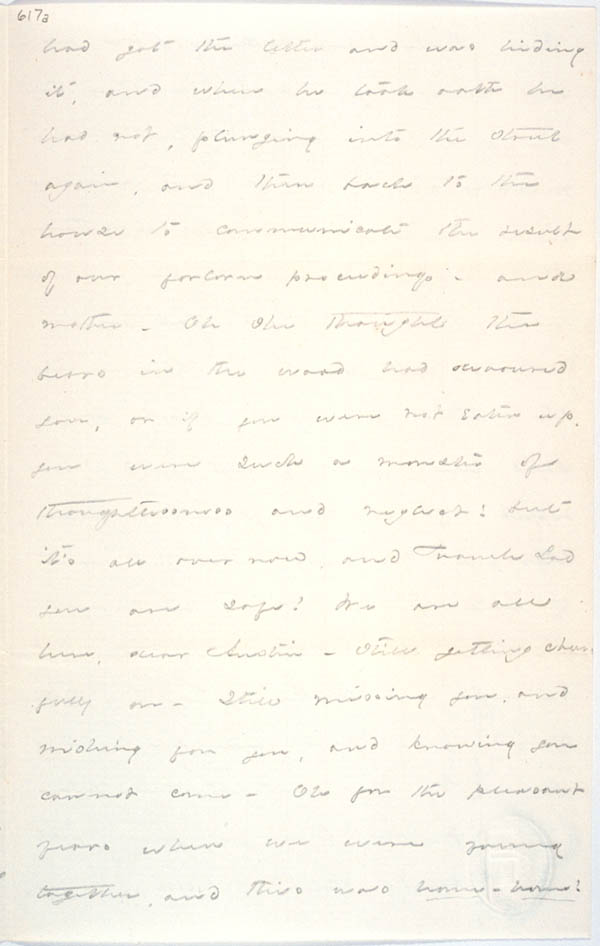 617a
had got the letter and was hiding
it, and when he took oath he
had not, plunging into the street
again, and then back to the
house to communicate the result
of our forlorn proceedings - and
mother - Oh she thought the
bears in the wood had devoured
you, or if you were not eaten up,
you were such a monster of
thoughtlessness and neglect! but
it's all over now, and Thank God
you are safe! We are all
here, dear Austin - still getting cheer
fully on - still missing you, and
wishing for you, and knowing you
cannot come - Oh for the pleasant
years when we were young
together, and this was home - home!